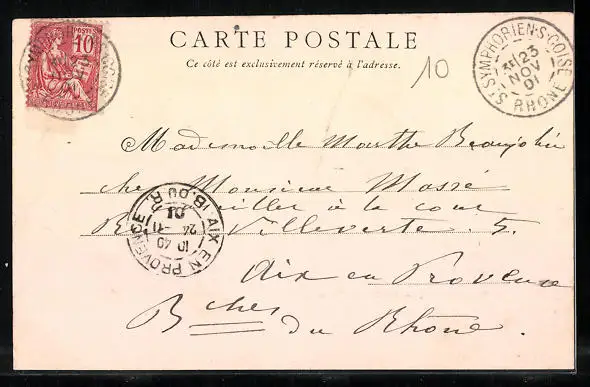 POSTES
10
CARTE POSTALE
Ce côté est exclusivement réservé à l'adresse.
10
ST SYMPHORIEN-S-COISE
23
NOV
01
RHONE
Mademoiselle Marthe
chez Monsieur Massé
à la cour
Villeverte. 5.
AIX EN PROVENCE
B. DU R.
10 40
24 -11
01
Aix en Provence
Bches du Rhône.